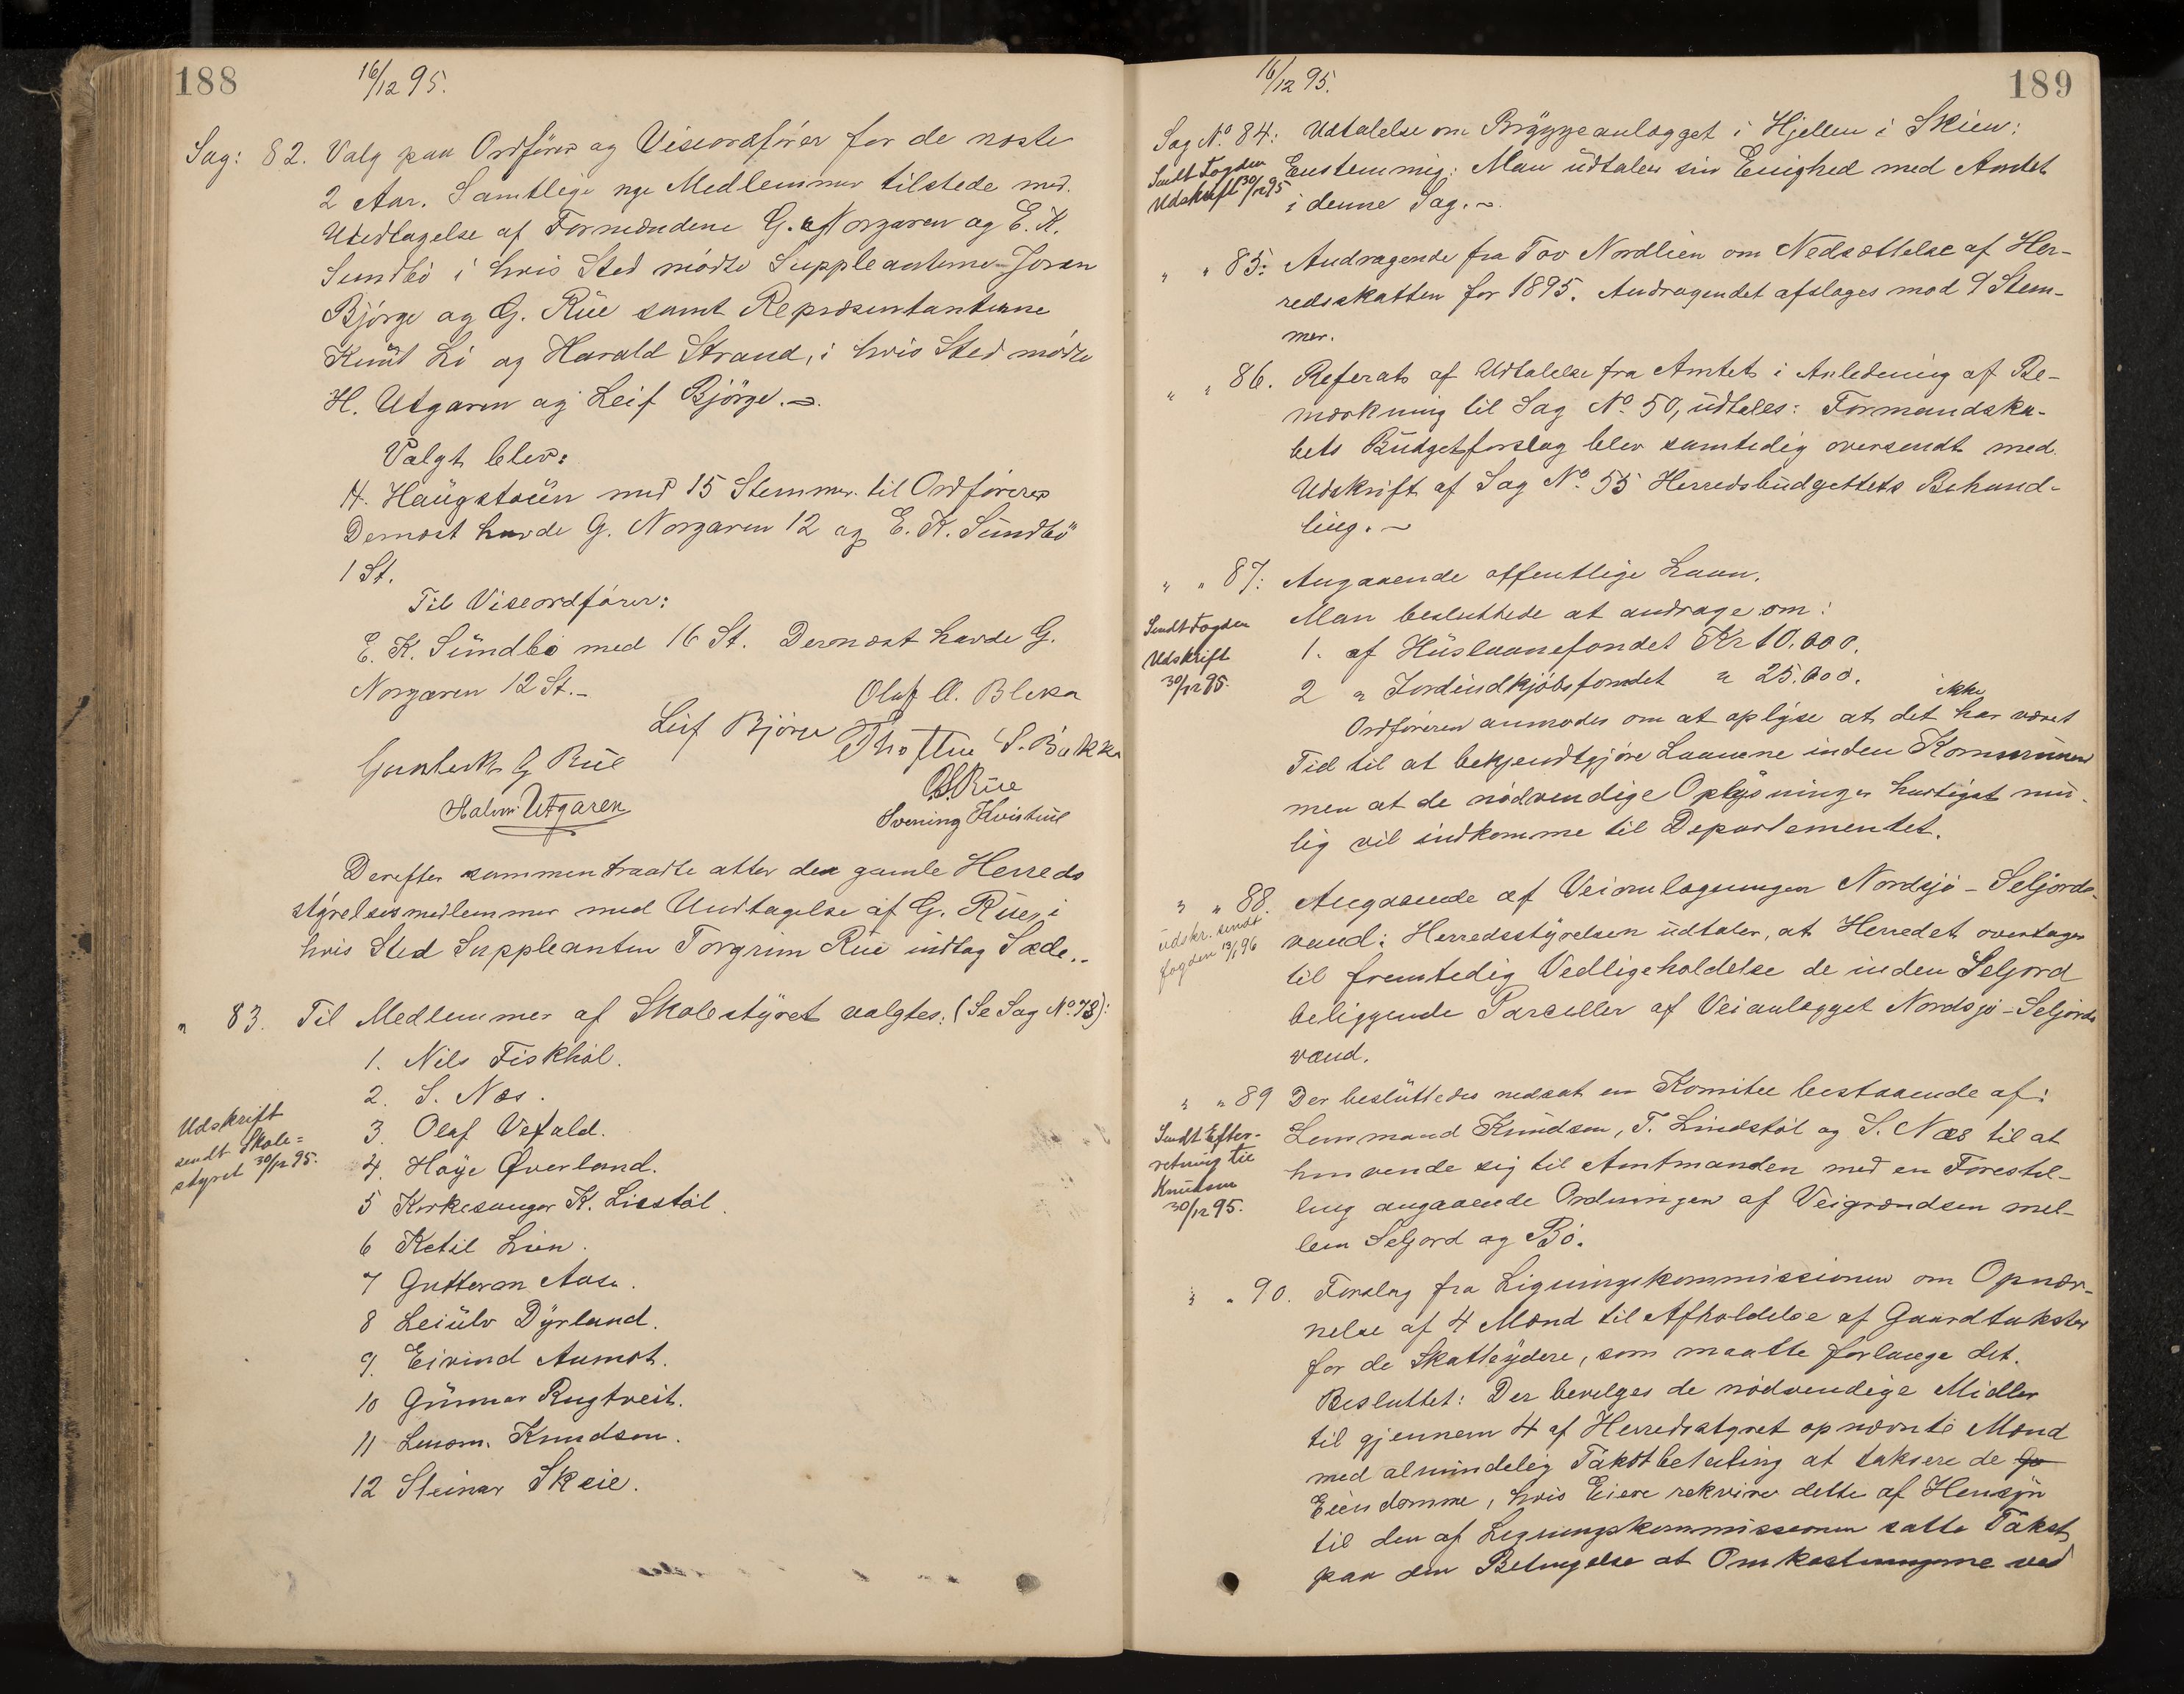 188
16/12 95.
Sag: 82. Valg paa Ordfører og Viseordfører for de næste
2 Aar. Samtlige nye Medlemmer tilstede med.
Undtagelse af Formændene G. Norgaren og E. K.
Sundbö i hvis Sted mödte Suppleanterne Joran
Björge og G. Rue samt Repræsentanterne
Knut Li og Harald Strand, i hvis Sted mödte
H. Utgaren og Leif Björge.
Valgt blev:
H. Haugstoün med 15 Stemmer til Ordförer
Dernæst havde G. Norgaren 12 og E. K. Sundbö
1 St.
Til Viseordförer:
E. K. Sundbö med 16 St. Dernæst havde G.
Norgaren 12 St.
Olaf A. Bleka
Leif Björge
S. Bakka
G Rue
Rue
Halvor Utgaren
Svening Kvistüil
Derefter sammentraadte atter den gamle Herreds
styrelses medlemmer med Undtagelse af G. Rue, i
hvis Sted Suppleanten Torgrim Rue indtog Sæde.
" 83. Til Medlemmer af Skolestyret valgtes: (Se Sag No. 78):
1. Nils Fiskhöl.
2. S. Næs.
Udskrift
sendt Skole=
styret 30/12 95.
3. Olaf Vefald.
4. Höye Øverland.
5 Kirkesanger K. Lisstöl.
6 Ketil Lien.
7 Gutteram Aase.
8 Leiulv Dyrland.
9. Eivind Aamot.
10 Gunnar Rugtveit.
11 Lensm. Knudsen.
12 Steinar Skeie.
189
16/12 95.
Sag No. 84: Udtalelse om Bryggeanlægget i Hjellen i Skien:
Sendt Fogden
Udskrift 30/12 95
Enstemmig: Man udtaler sin Enighed med Amtet
i denne Sag.
" " 85: Andragende fra Tov Nordlien om Nedsættelse af Her-
redsskatten for 1895. Andragendet afsloges mod 9 Stem-
mer.
" " 86. Referat af Udtalelse fra Amtet i Anledning af Be-
mærkning til Sag No. 50, udtales: Formandska-
bets Budgetforslag blev samtidig oversendt med
Udskrift af Sag No. 55 Herredsbudgettets Behand-
ling.
" " 87: Angaaende offentlige Laan.
Sendt Fogden
Udskrift
30/12 95.
Man besluttede at andrage om:
1. af Huslaanefondet Kr 10.000.
2 " Jordindkjöbsfondet " 25.000.
ikke
Ordföreren anmodes om at oplyse at det har været
Tid til at bekjendtgjöre Laanene inden Kommunen
men at de nödvendige Oplysninger hurtigst mu-
lig vil indkomme til Departementet.
" " 88. Angaaende af Veiomlægningen Nordsjö - Seljords-
udskr. sendt
fogden 13/1 96
vand: Herredsstyrelsen udtaler, at Herredet overtager
til fremtidig Vedligeholdelse de inden Seljord
beliggende Parceller af Veianlægget Nordsjö - Seljords
vand.
" " 89 Der besluttedes nedsat en Komitee bestaaende af:
Sendt Efter-
retning til
Knudsen
30/12 95.
Lensmand Knudsen, T. Lindstöl og S. Næs til at
henvende sig til Amtmanden med en Forestil-
ling angaaende Ordningen af Veigrændsen mel-
lem Seljord og Bö.
" " 90. Forslag fra Ligningskommissionen om Opnæv-
nelse af 4 Mænd til Afholdelse af Gaardtakster
for de Skatteydere, som maatte forlange det.
Besluttet: Der bevilges de nödvendige Midler
til gjennem 4 af Herredsstyret opnævnte Mænd
med almindelig Takstbetaling at taksere de Ga
Eiendomme, hvis Eiere rekvirer dette af Hensyn
til den af Ligningskommissionen satte Takst,
paa den Betingelse at Omkostningerne ved